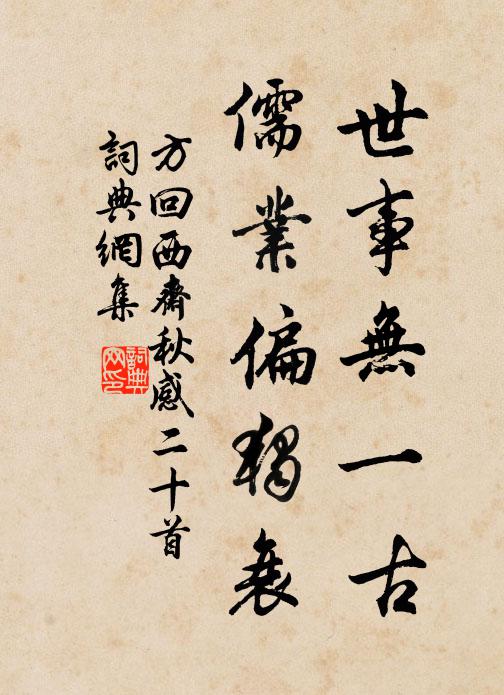 世事無一古
儒業偏獨衰
方回西齋秋感二十首
詞典網集
詞典網印